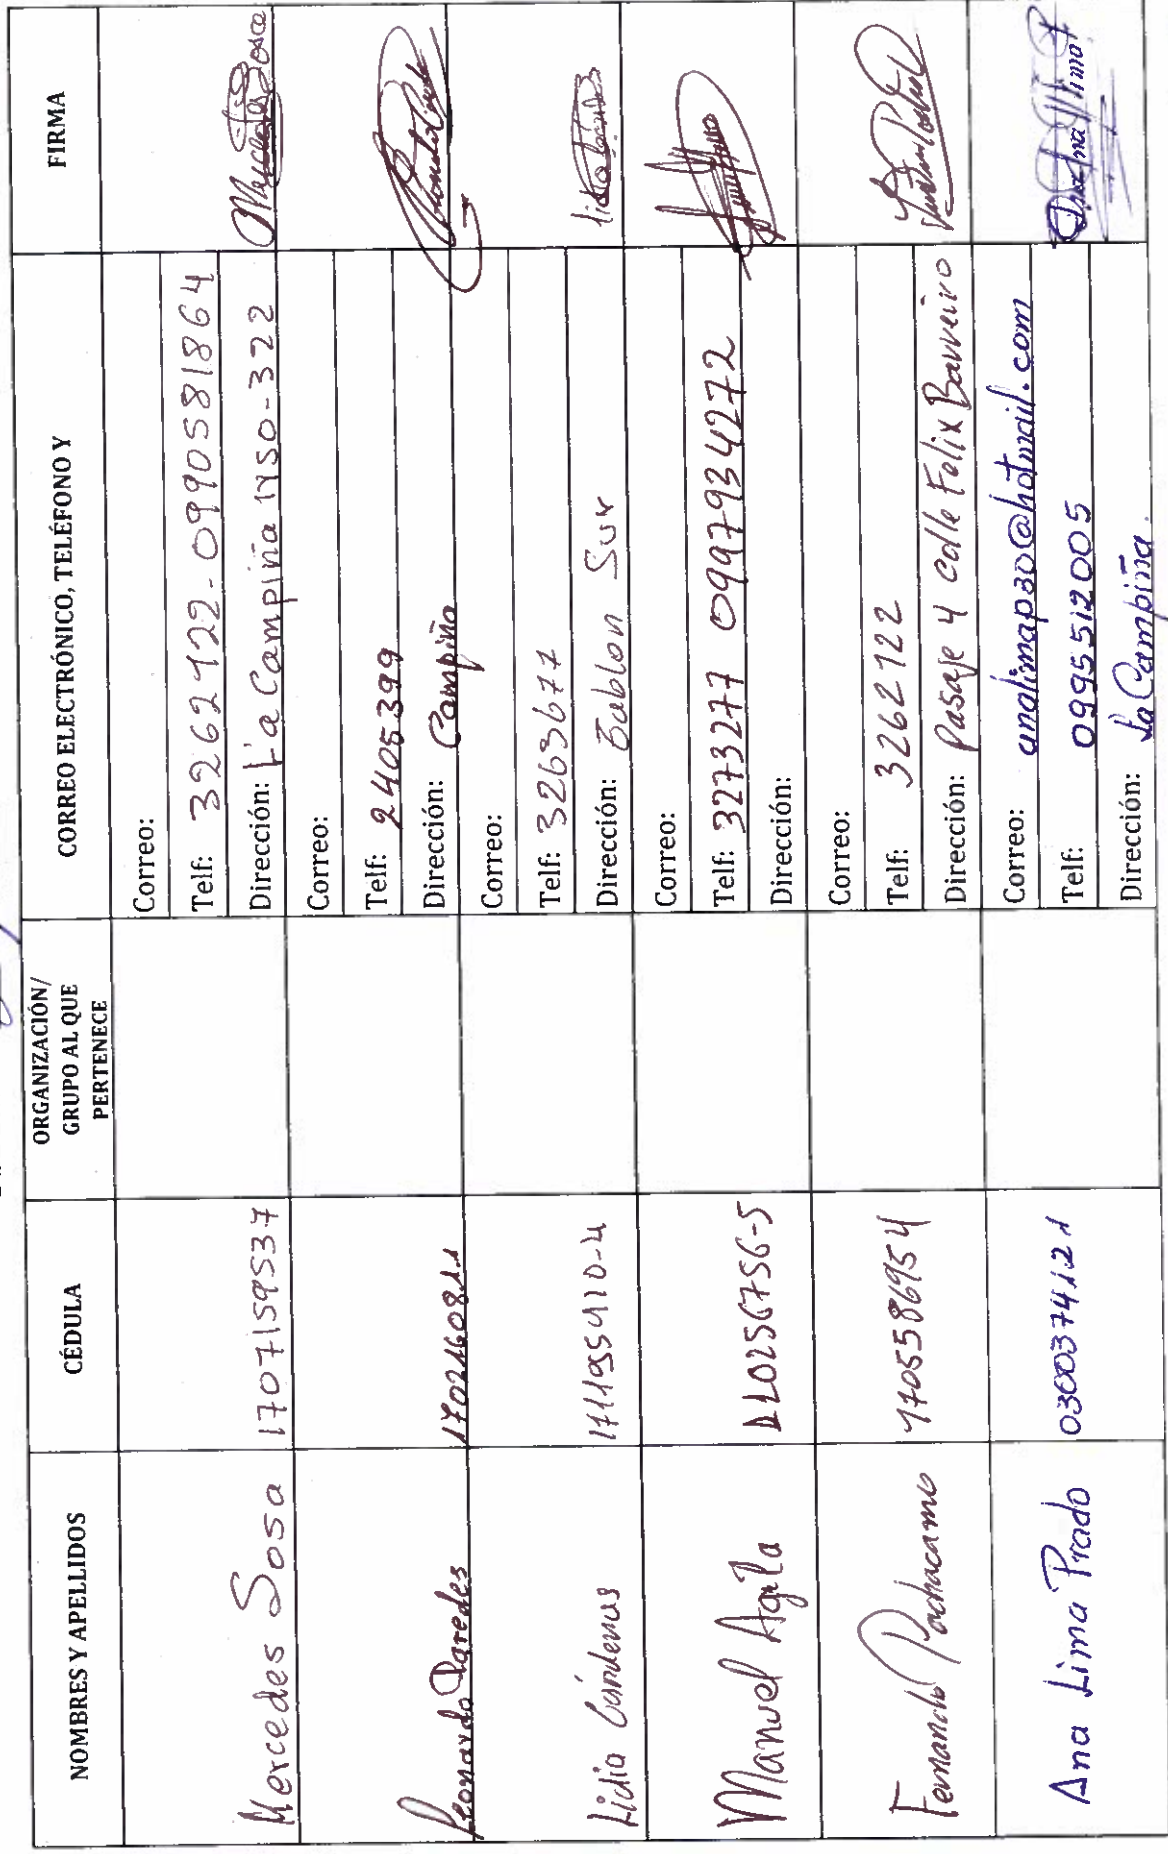 NOMBRES Y APELLIDOS
CÉDULA
ORGANIZACIÓN/
GRUPO AL QUE
PERTENECE
CORREO ELECTRÓNICO, TELÉFONO Y
FIRMA
Mercedes Sosa
1707159537
Correo:
Telf: 3262122-0990581864
Dirección: La Campiña 1450-322
Leonardo Paredes
1702160811
Correo:
Telf: 2405399
Dirección: Campiña
Lidia Cárdenas
171195410-4
Correo:
Telf: 3263677
Dirección: Sur
Manuel Agila
110256756-5
Correo:
Telf: 3273277 0997934272
Dirección:
Fernando Pachacama
1705586954
Correo:
Telf: 3262122
Dirección: Pasaje 4 calle Felix Barreiro
Ana Lima Prado
0300374121
Correo: analimap30@hotmail.com
Telf: 0995512005
Dirección: La Campiña.